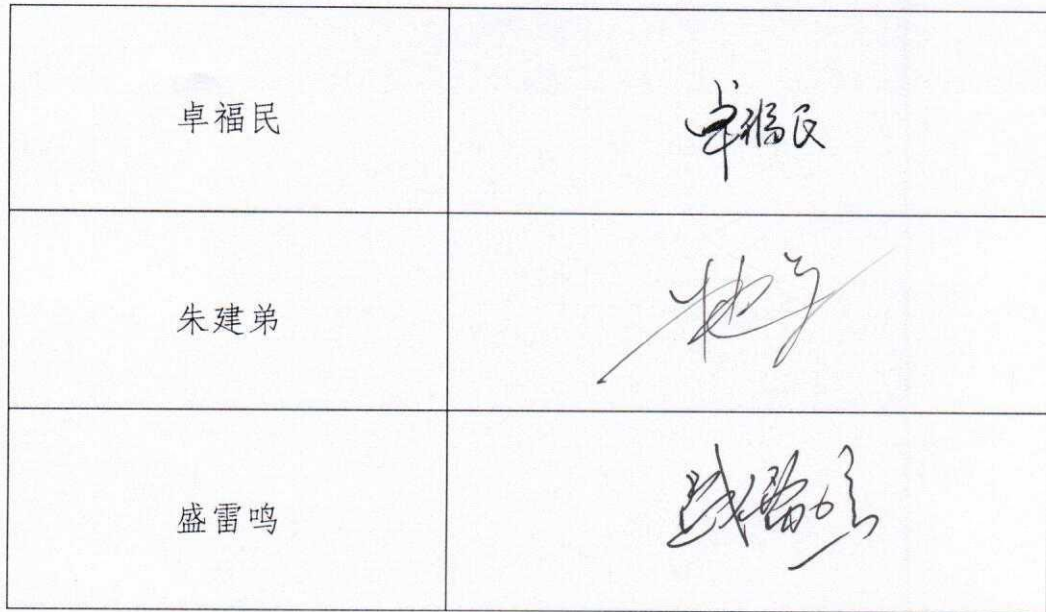 卓福民
卓福民
朱建弟
盛雷鸣